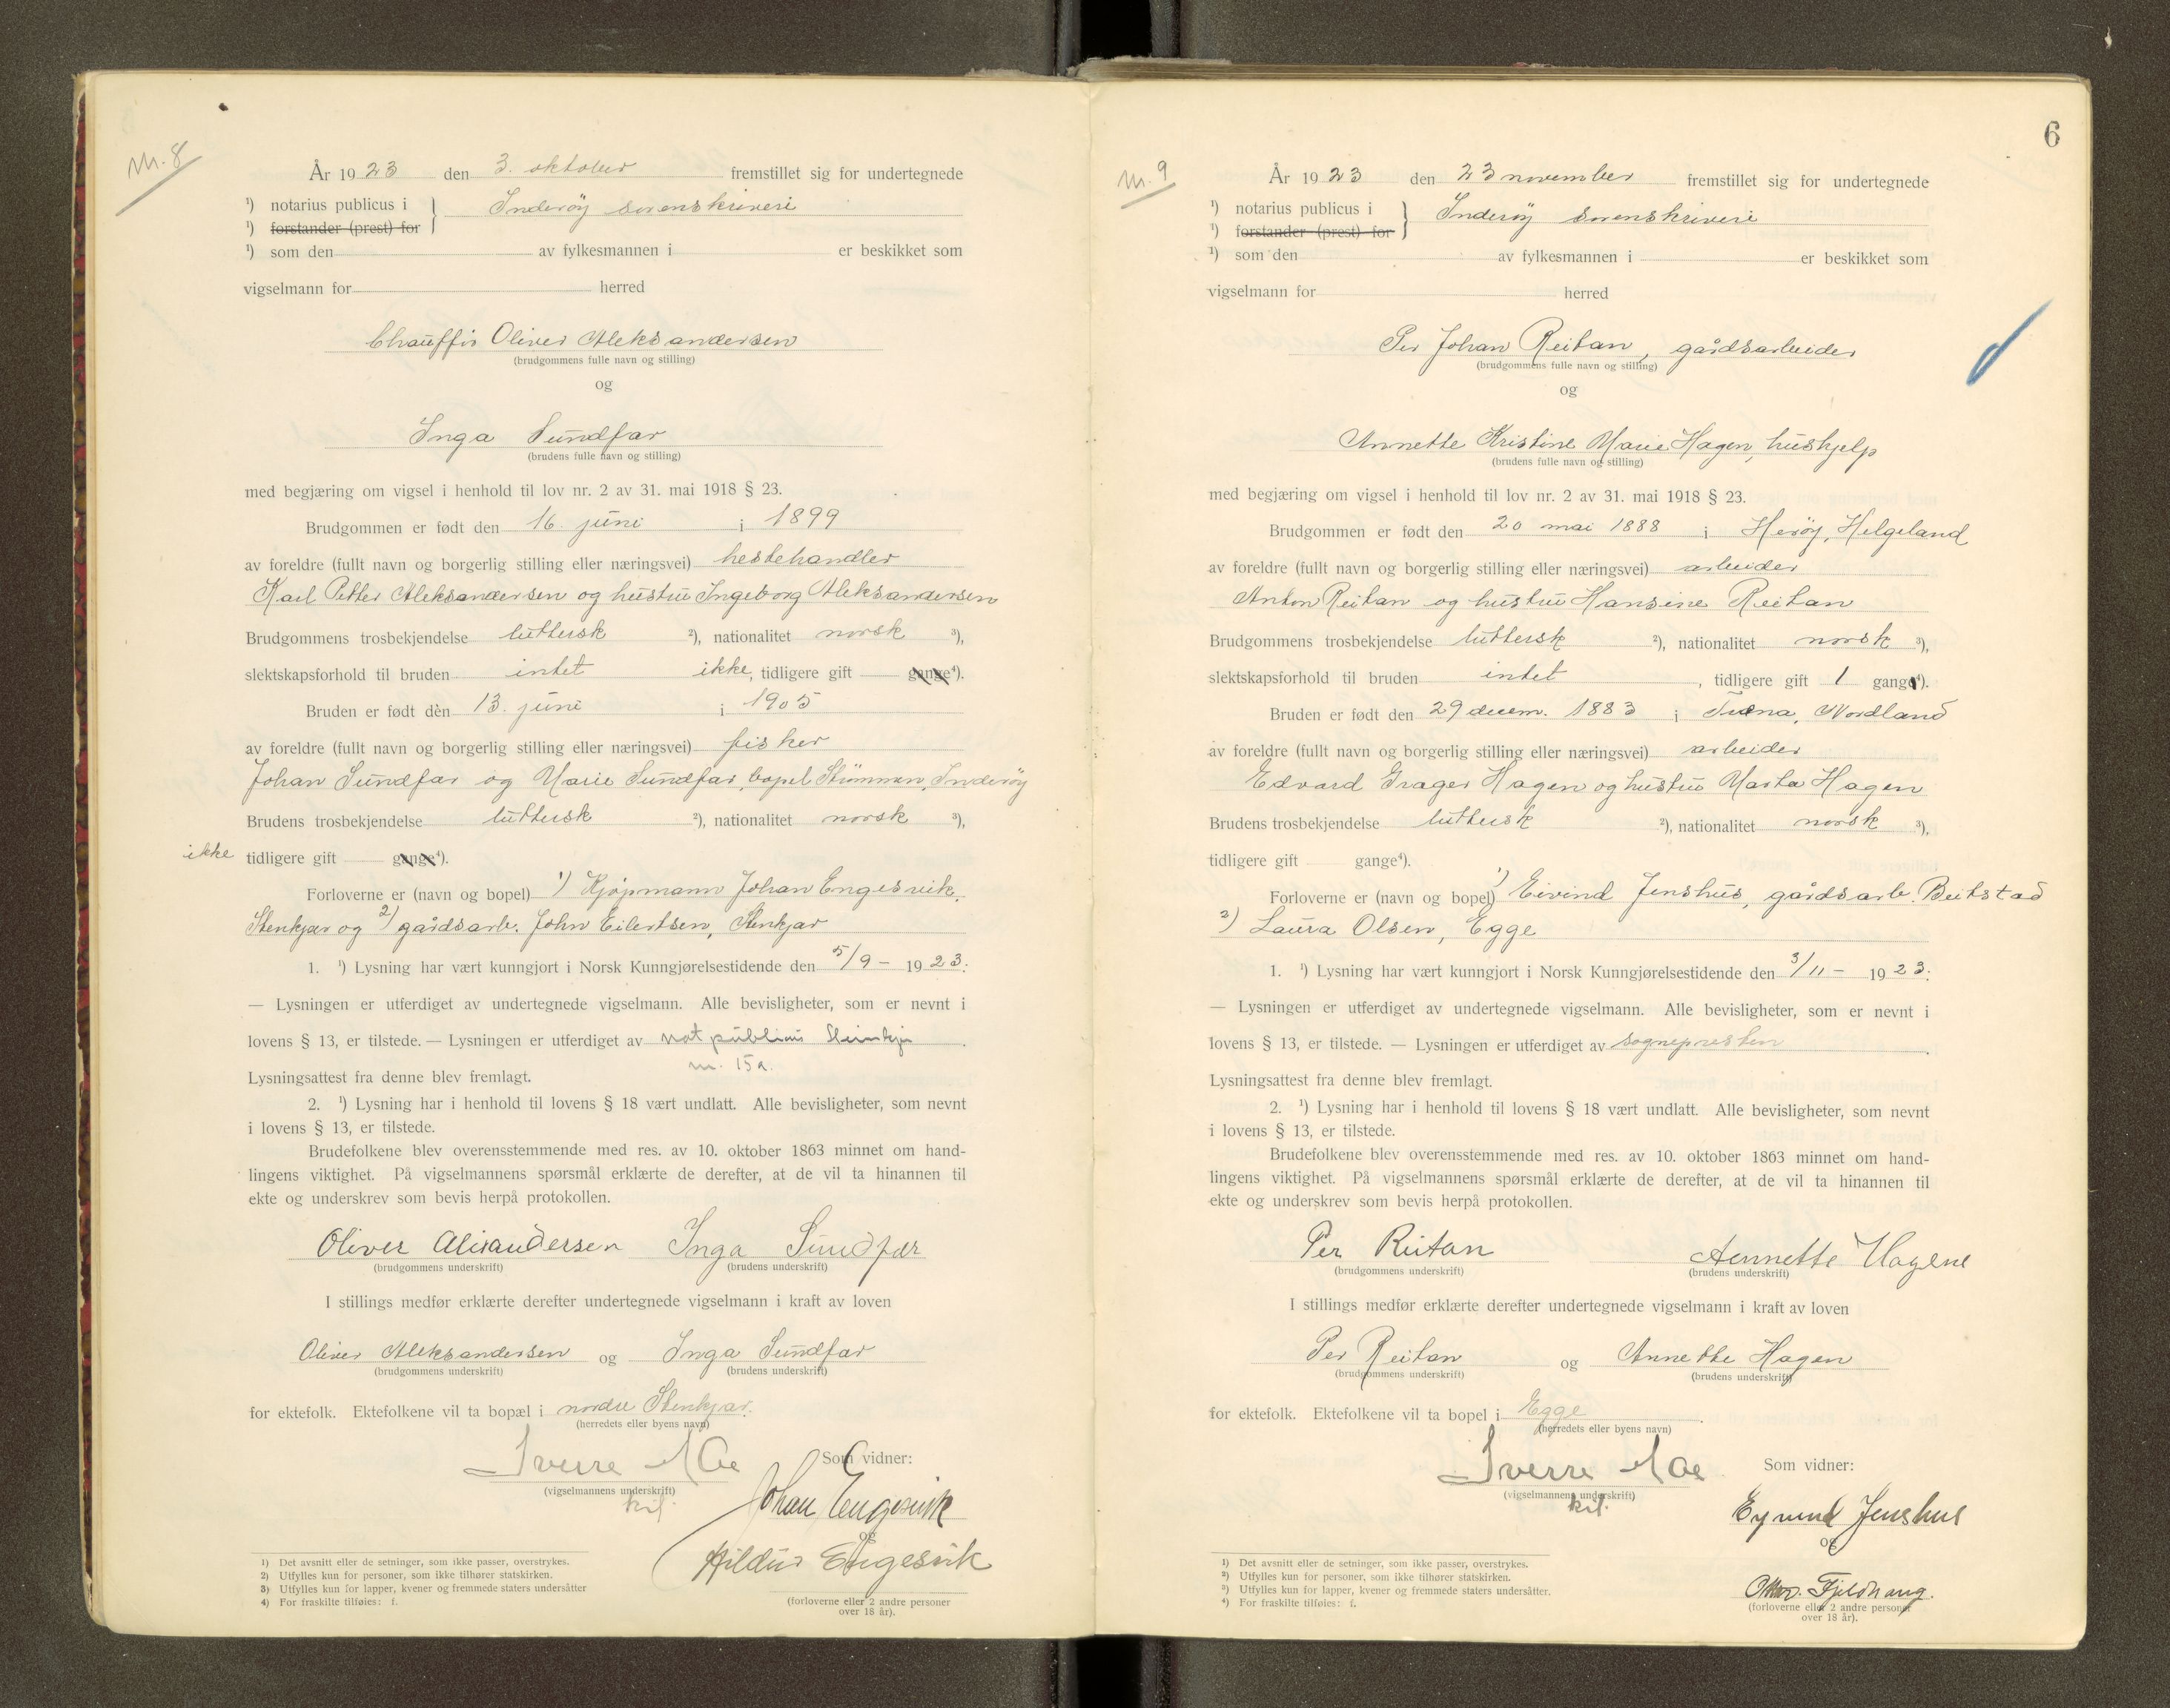 n. 8
År 1923 den 3. oktober fremstillet sig for undertegnede
¹) notarius publicus i } Inderöy sorenskriveri
¹) forstander (prest) for
¹) som den av fylkesmannen i er beskikket som
vigselmann for herred
Chauffør Oliver Aleksandersen
(brudgommens fulle navn og stilling)
og
Inga Sundfær
(brudens fulle navn og stilling)
med begjæring om vigsel i henhold til lov nr. 2 av 31. mai 1918 § 23.
Brudgommen er født den 16. juni i 1899
av foreldre (fullt navn og borgerlig stilling eller næringsvei) hestehandler
Karl Petter Aleksandersen og hustru Ingeborg Aleksandersen
Brudgommens trosbekjendelse luthersk ²), nationalitet norsk ³),
slektskapsforhold til bruden intet ikke, tidligere gift gange⁴).
Bruden er født den 13. juni i 1905
av foreldre (fullt navn og borgerlig stilling eller næringsvei) fisker
Johan Sundfær og Marie Sundfær, bopel Strömmen, Inderöy
Brudens trosbekjendelse luthersk ²), nationalitet norsk ³),
ikke tidligere gift gange⁴).
Forloverne er (navn og bopel) 1) Kjøpmann Johan Engesvik,
Stenkjær og 2) gårdsarb. John Eilertsen, Stenkjær
1. ¹) Lysning har vært kunngjort i Norsk Kunngjørelsestidende den 5/9 - 1923.
— Lysningen er utferdiget av undertegnede vigselmann. Alle bevisligheter, som er nevnt i
lovens § 13, er tilstede. — Lysningen er utferdiget av not publicus Steinkjer
n. 15a.
Lysningsattest fra denne blev fremlagt.
2. ¹) Lysning har i henhold til lovens § 18 vært undlatt. Alle bevisligheter, som nevnt
i lovens § 13, er tilstede.
Brudefolkene blev overensstemmende med res. av 10. oktober 1863 minnet om hand-
lingens viktighet. På vigselmannens spørsmål erklærte de derefter, at de vil ta hinannen til
ekte og underskrev som bevis herpå protokollen.
Oliver Alexandersen Inga Sundfær
(brudgommens underskrift) (brudens underskrift)
I stillings medfør erklærte derefter undertegnede vigselmann i kraft av loven
Oliver Aleksandersen og Inga Sundfær
(brudgommens underskrift) (brudens underskrift)
for ektefolk. Ektefolkene vil ta bopæl i nordre Stenkjær.
(herredets eller byens navn)
Sverre Moe Som vidner:
(vigselmannens underskrift)
Johan Engesvik
og
Hildur Engesvik
(forloverne eller 2 andre personer
over 18 år).
1) Det avsnitt eller de setninger, som ikke passer, overstrykes.
2) Utfylles kun for personer, som ikke tilhører statskirken.
3) Utfylles kun for lapper, kvener og fremmede staters undersåtter
4) For fraskilte tilføies: f.
6
n. 9
År 1923 den 23 november fremstillet sig for undertegnede
¹) notarius publicus i } Inderöy sorenskriveri
¹) forstander (prest) for
¹) som den av fylkesmannen i er beskikket som
vigselmann for herred
Per Johan Reitan, gårdsarbeider
(brudgommens fulle navn og stilling)
og
Annette Kristine Marie Hagen, hushjelp
(brudens fulle navn og stilling)
med begjæring om vigsel i henhold til lov nr. 2 av 31. mai 1918 § 23.
Brudgommen er født den 20 mai 1888 i Heröy, Helgeland
av foreldre (fullt navn og borgerlig stilling eller næringsvei) arbeider
Anton Reitan og hustru Hansine Reitan
Brudgommens trosbekjendelse luthersk ²), nationalitet norsk ³),
slektskapsforhold til bruden intet, tidligere gift 1 gang⁴).
Bruden er født den 29 decem. 1883 i Træna, Nordland
av foreldre (fullt navn og borgerlig stilling eller næringsvei) arbeider
Edvard Grager Hagen og hustru Marta Hagen
Brudens trosbekjendelse luthersk ²), nationalitet norsk ³),
tidligere gift gange⁴).
Forloverne er (navn og bopel) 1) Eivind Jenshus, gårdsarb. Beitstad
2) Laura Olsen, Egge
1. ¹) Lysning har vært kunngjort i Norsk Kunngjørelsestidende den 3/11 - 1923.
— Lysningen er utferdiget av undertegnede vigselmann. Alle bevisligheter, som er nevnt i
lovens § 13, er tilstede. — Lysningen er utferdiget av sognepresten.
Lysningsattest fra denne blev fremlagt.
2. ¹) Lysning har i henhold til lovens § 18 vært undlatt. Alle bevisligheter, som nevnt
i lovens § 13, er tilstede.
Brudefolkene blev overensstemmende med res. av 10. oktober 1863 minnet om hand-
lingens viktighet. På vigselmannens spørsmål erklærte de derefter, at de vil ta hinannen til
ekte og underskrev som bevis herpå protokollen.
Per Reitan Annette Hagene
(brudgommens underskrift) (brudens underskrift)
I stillings medfør erklærte derefter undertegnede vigselmann i kraft av loven
Per Reitan og Annette Hagen
(brudgommens underskrift) (brudens underskrift)
for ektefolk. Ektefolkene vil ta bopel i Egge.
(herredets eller byens navn)
Sverre Moe Som vidner:
(vigselmannens underskrift)
Eyvind Jenshus
og
Fjeldhaug.
(forloverne eller 2 andre personer
over 18 år).
¹) Det avsnitt eller de setninger, som ikke passer, overstrykes.
²) Utfylles kun for personer, som ikke tilhører statskirken.
³) Utfylles kun for lapper, kvener og fremmede staters undersåtter.
⁴) For fraskilte tilføies: f.